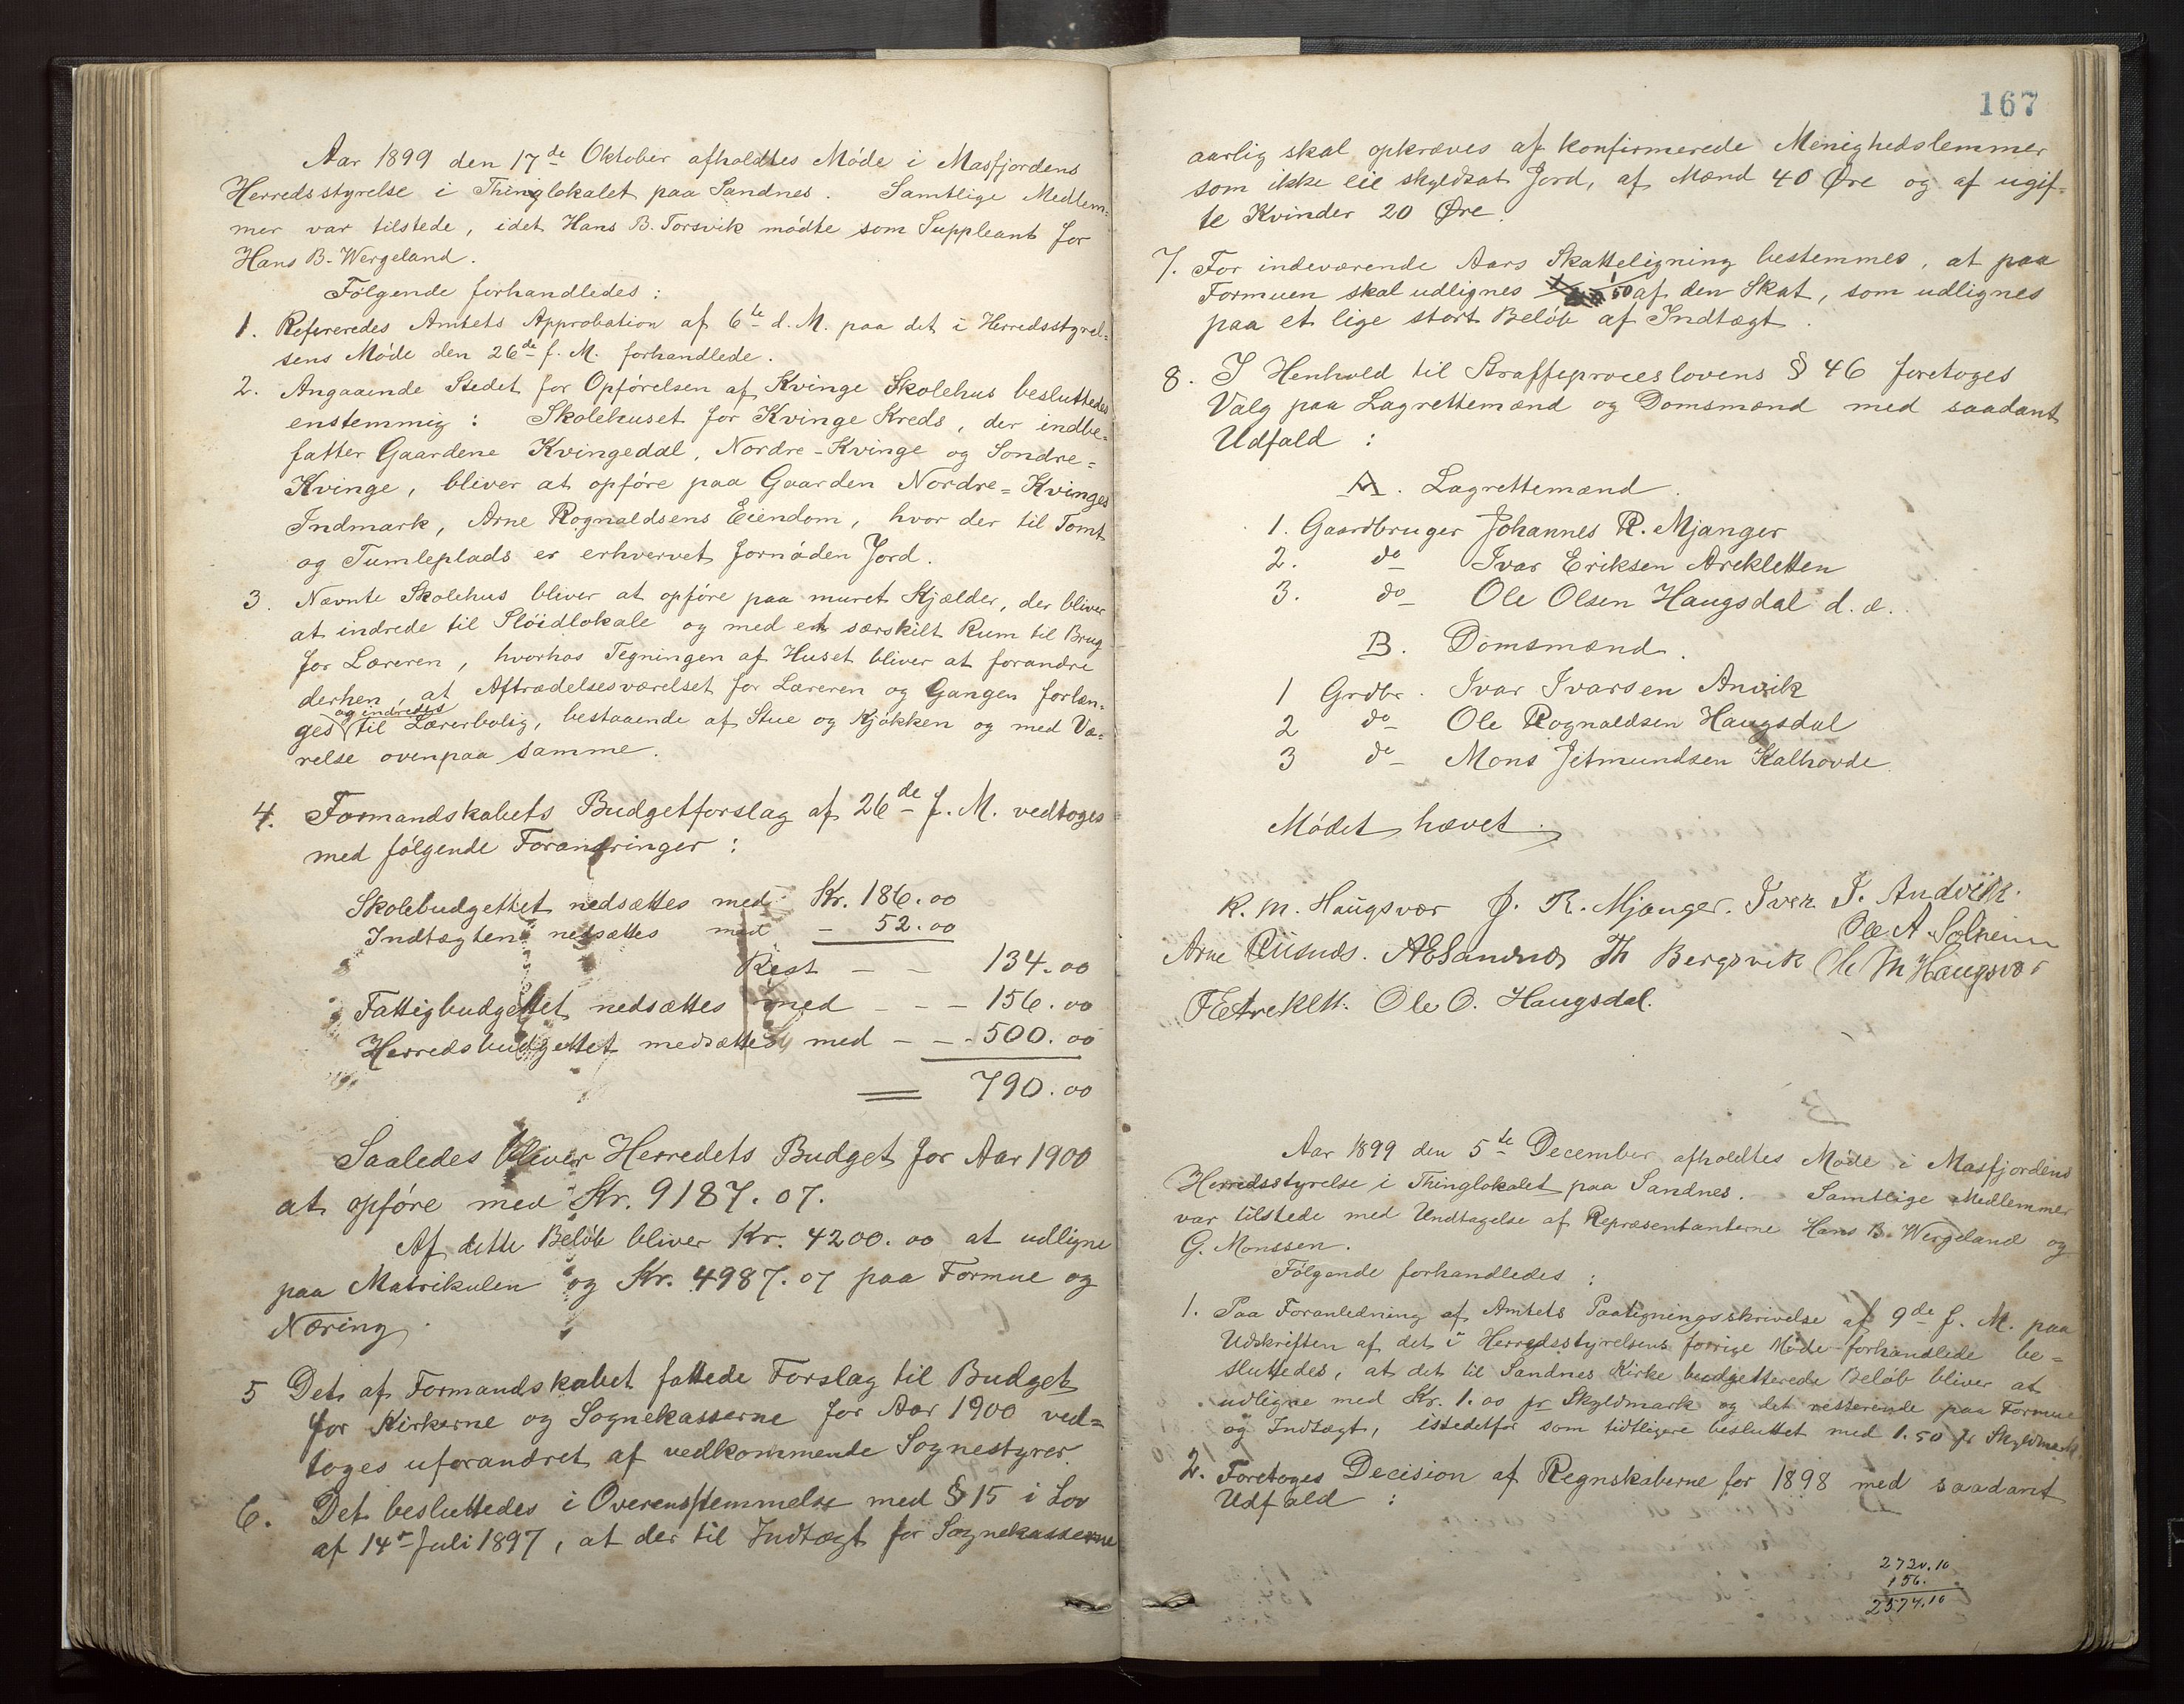 Aar 1899 den 17de Oktober afholdtes Möde i Masfjordens
Herredsstyrelse i Thinglokalet paa Sandnes. Samtlige Medlem-
mer var tilstede, idet Hans B. Torsvik mödte som Suppleant for
Hans B. Wergeland.
Fölgende forhandledes:
1. Refereredes Amtets Approbation af 6te d. M. paa det i Herredsstyrel-
sens Möde den 26de f. M. forhandlede.
2. Angaaende Stedet for Opförelsen af Kvinge Skolehus besluttedes
enstemmig: Skolehuset for Kvinge Kreds, der indbe-
fatter Gaardene Kvingedal, Nordre-Kvinge og Söndre-
Kvinge, bliver at opföre paa Gaarden Nordre-Kvinges
Indmark, Arne Rognaldsens Eiendom, hvor der til Tomt
og Tumleplads er erhvervet fornöden Jord.
3. Nævnte Skolehus bliver at opföre paa muret Kjælder, der bliver
at indrede til Slöidlokale og med et særskilt Rum til Brug
for Læreren, hvorhos Tegningen af Huset bliver at forandre
derhen, at Aftrædelsesværelset for Læreren og Gangen forlæn-
og indredes
ges til Lærerbolig, bestaaende af Stue og Kjökken og med Væ-
relse ovenpaa samme.
4. Formandskabets Budgetforslag af 26de f. M. vedtoges
med fölgende Forandringer:
Skolebudgettet nedsættes med Kr. 186.00
Indtægten nedsættes med – 52.00
Rest – – 134.00
Fattigbudgettet nedsættes med – – 156.00
Herredsbudgettet nedsættes med – – 500.00
= 790.00
Saaledes bliver Herredets Budget for Aar 1900
at opföre med Kr. 9187.07.
Af dette Belöb bliver Kr. 4200.00 at udligne
paa Matrikulen og Kr. 4987.07 paa Formue og
Næring.
5 Det af Formandskabet fattede Forslag til Budget
for Kirkerne og Sognekasserne for Aar 1900 ved-
toges uforandret af vedkommende Sognestyrer.
6. Det besluttedes i Overensstemmelse med § 15 i Lov
af 14de Juli 1897, at der til Indtægt for Sognekasserne
167
aarlig skal opkræves af konfirmerede Menighedslemmer
som ikke eie skyldsat Jord, af Mænd 40 Øre og af ugif-
te Kvinder 20 Øre.
7. For indeværende Aars Skatteligning bestemmes, at paa
Formuen skal udlignes 1/50 af den Skat, som udlignes
paa et lige stort Belöb af Indtægt.
8. I Henhold til Straffeproceslovens § 46 foretoges
Valg paa Lagrettemænd og Domsmænd med saadant
Udfald:
A. Lagrettemænd.
1. Gaardbruger Johannes R. Mjanger
2. do Ivar Eriksen Arekletten
3. do Ole Olsen Haugsdal d. æ.
B. Domsmænd.
1 Grdbr. Ivar Ivarsen Anvik
2 do Ole Rognaldsen Haugsdal
3 do Mons Jetmundsen Kalhovde
Mödet hævet.
K. M. Haugsvær J. R. Mjanger. Iver I. Andvik.
Ole A. Solheim
Arne AESandnes Th Bergsvik Ole M Haugsvær
Ole O. Haugsdal.
Aar 1899 den 5te December afholdtes Möde i Masfjordens
Herredsstyrelse i Thinglokalet paa Sandnes. Samtlige Medlemmer
var tilstede med Undtagelse af Repræsentanterne Hans B. Wergeland og
G. Monssen.
Fölgende forhandledes:
1. Paa Foranledning af Amtets Paategningsskrivelse af 9de f. M. paa
Udskriften af det i Herredsstyrelsens forrige Möde forhandlede be-
sluttedes, at det til Sandnes Kirke budgetterede Belöb bliver at
udligne med Kr. 1.00 pr Skyldmark og det resterende paa Formue
og Indtægt, istedetfor som tidligere besluttet med 1.50 pr Skyldmark
2. Foretoges Decision af Regnskaberne for 1898 med saadant
Udfald:
2730.10
156.
2574.10